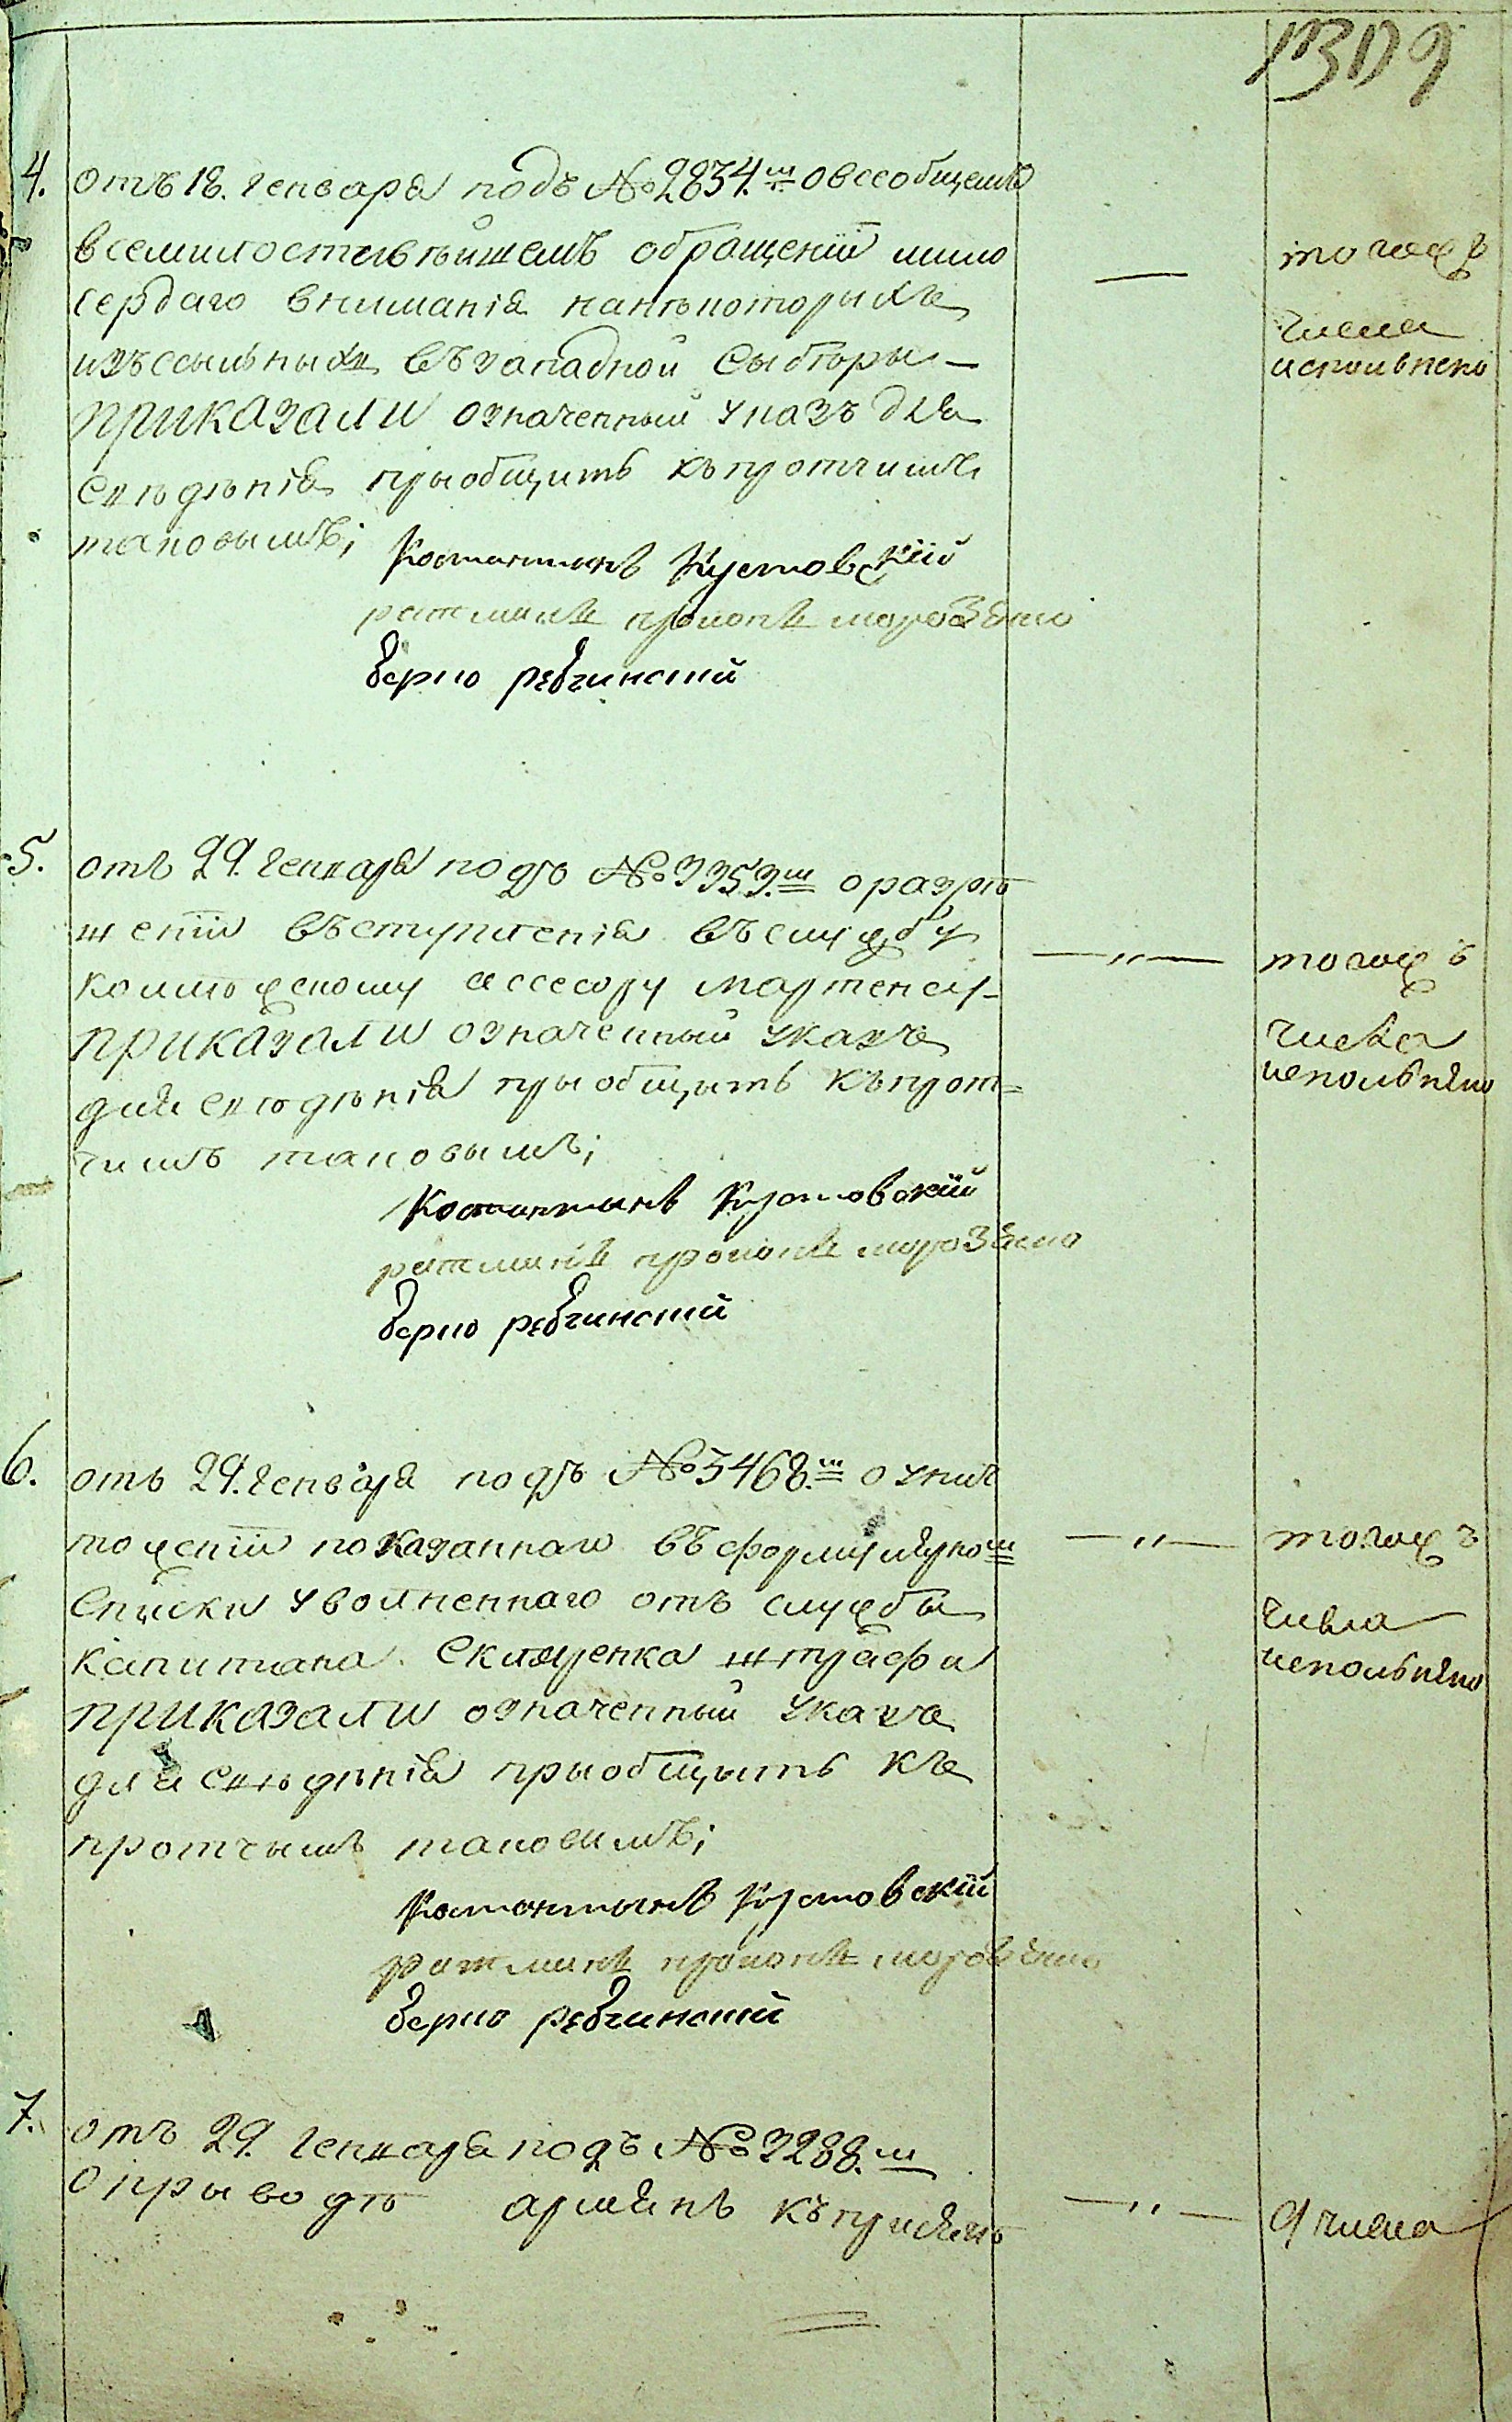 4. отъ 18. генваря подъ №2834.мъ о всеобщемъ
всемилостивѣйшемъ обращеніи мило
сердаго вниманія нанѣкоторыхъ
изъссыльныхъ въ западной Сыбѣры –
приказали означенный указъ для
свѣдѣнія прыобщить къпротчимъ
таковымъ;
Константынъ Кустовскій
ратманъ прокопъ
Верно
тогожъ
числа
исполънено
5. отъ 29. генваря подъ №3353.мъ о разрѣ
шеніи въступленія въслужбу
коллежскому ассесору Мартенсу –
приказали означенный указъ
для свѣдѣнія прыобщить къпрот=
чимъ таковымъ;
Константынъ Кустовскій
ратманъ прокопъ
Верно
— „ — тогожъ
числа
исполънено
6. отъ 29. генваря подъ №3468.мъ о унич
тоженіи показаннаго въформулярномъ
Списки уволненнаго отъ службы
капитана. Скляренка штрафа
приказали означенный указъ
для свѣдѣнія прыобщыть къ
протчымъ таковымъ;
Константынъ Кустовскій
ратманъ прокопъ
Верно
— „ — тогожъ
числа
исполънено
7. отъ 29. генваря подъ №3288.мъ
о прыводѣ армянъ къпрысягѣ
— „ — 9 числа